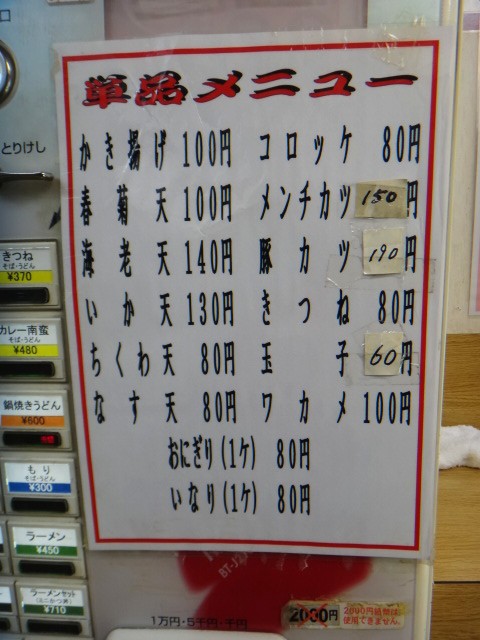 単品メニュー
かき揚げ 100円 コロッケ 80円
春菊天 100円 メンチカツ 150円
海老天 140円 豚カツ 190円
いか天 130円 きつね 80円
ちくわ天 80円 玉子 60円
なす天 80円 ワカメ 100円
おにぎり(1ケ) 80円
いなり(1ケ) 80円
口
とりけし
きつね
そば・うどん
¥370
カレー南蛮
そば・うどん
¥480
鍋焼きうどん
¥600
もり
そば・うどん
¥300
ラーメン
¥450
ラーメンセット
(ミニかつ丼)
¥710
1万円・5千円・千円
2000円
2000円紙幣は
使用できません。